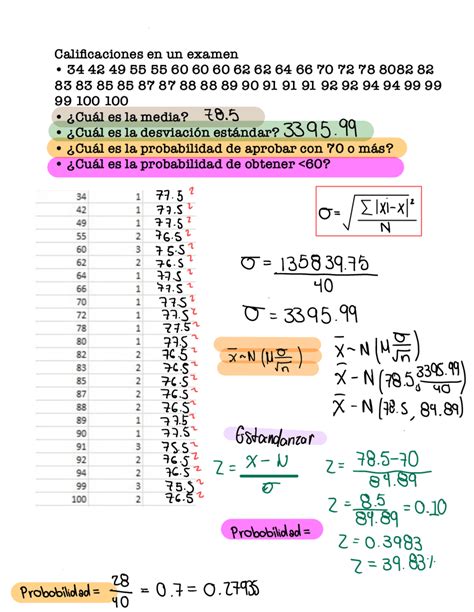 Calificaciones en un examen
• 34 42 49 55 55 60 60 60 62 62 64 66 70 72 78 8082 82
83 83 85 85 87 87 88 88 89 90 91 91 91 92 92 94 94 99 99
99 100 100
• ¿Cuál es la media? 78.5
• ¿Cuál es la desviación estándar? 3395.99
• ¿Cuál es la probabilidad de aprobar con 70 o más?
• ¿Cuál es la probabilidad de obtener <60?
34 1 77.5²
42 1 77.5²
49 1 77.5²
55 2 76.5²
60 3 75.5²
62 2 76.5²
64 1 77.5²
66 1 77.5²
70 1 77.5²
72 1 77.5²
78 1 77.5²
80 1 77.5²
82 2 76.5²
83 2 76.5²
85 2 76.5²
87 2 76.5²
88 2 76.5²
89 1 77.5²
90 1 77.5²
91 3 75.5²
92 2 76.5²
94 2 76.5²
99 3 75.5²
100 2 76.5²
σ = √ Σ|xi-x|² / N
σ = 135839.75 / 40
σ = 3395.99
x̄~N(M σ/√n)
x̄~N(M σ/√n)
x̄~N(78.5, 3395.99/40)
x̄~N(78.5, 84.89)
Estandarizar
Z = x-N / σ
Z = 78.5-70 / 84.89
Z = 8.5 / 84.89 = 0.10
Z = 0.3983
Z = 39.83%
Probabilidad =
Probabilidad = 28/40 = 0.7 = 0.27935